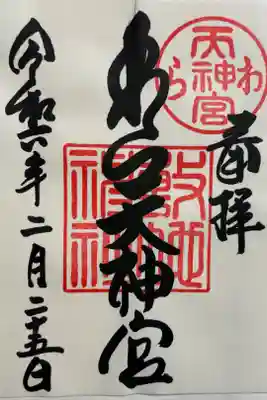 奉拝
わら天神宮
わら天神宮
敷地神社
令和六年二月二十五日